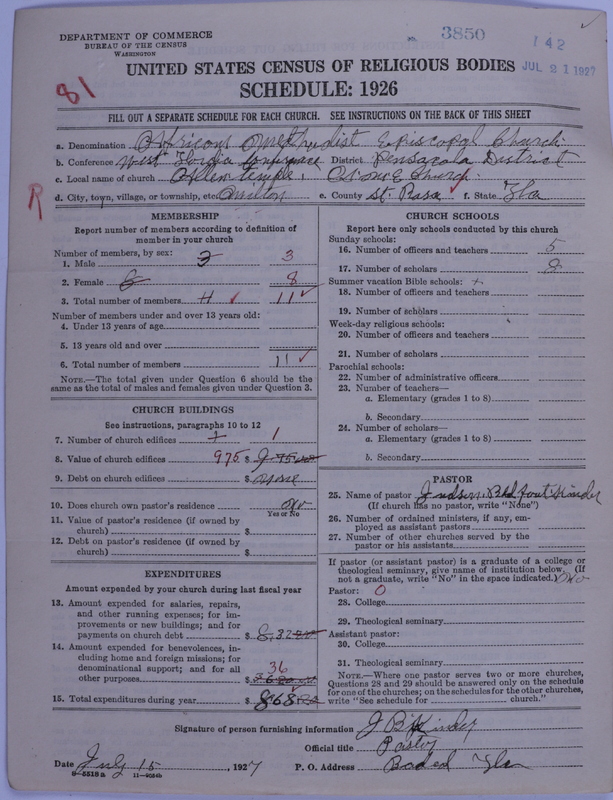 DEPARTMENT OF COMMERCE
BUREAU OF THE CENSUS
WASHINGTON
3850
142
JUL 21 1927
UNITED STATES CENSUS OF RELIGIOUS BODIES
SCHEDULE: 1926
81
FILL OUT A SEPARATE SCHEDULE FOR EACH CHURCH. SEE INSTRUCTIONS ON THE BACK OF THIS SHEET
a. Denomination African Methodist Episcopal Church
b. Conference West Florida Conference District Pensacola District
c. Local name of church Allen Temple, Church
R
d. City, town, village, or township, etc. Milton e. County St. Rosa f. State Fla
MEMBERSHIP
Report number of members according to definition of
member in your church
Number of members, by sex:
1. Male 3 3
2. Female 8
3. Total number of members 11 11
Number of members under and over 13 years old:
4. Under 13 years of age
5. 13 years old and over
6. Total number of members 11
NOTE.—The total given under Question 6 should be
the same as the total of males and females given under Question 3.
CHURCH BUILDINGS
See instructions, paragraphs 10 to 12
7. Number of church edifices 1 1
8. Value of church edifices 975 $
9. Debt on church edifices $ None
10. Does church own pastor's residence No
Yes or No
11. Value of pastor's residence (if owned by
church) $
12. Debt on pastor's residence (if owned by
church) $
EXPENDITURES
Amount expended by your church during last fiscal year
13. Amount expended for salaries, repairs,
and other running expenses; for im-
provements or new buildings; and for
payments on church debt $ 832
14. Amount expended for benevolences, in-
cluding home and foreign missions; for
denominational support; and for all
other purposes $ 36
15. Total expenditures during year $ 868
CHURCH SCHOOLS
Report here only schools conducted by this church
Sunday schools:
16. Number of officers and teachers 5
17. Number of scholars 8
Summer vacation Bible schools:
18. Number of officers and teachers
19. Number of scholars
Week-day religious schools:
20. Number of officers and teachers
21. Number of scholars
Parochial schools:
22. Number of administrative officers
23. Number of teachers—
a. Elementary (grades 1 to 8)
b. Secondary
24. Number of scholars—
a. Elementary (grades 1 to 8)
b. Secondary
PASTOR
25. Name of pastor Judson
(If church has no pastor, write "None")
26. Number of ordained ministers, if any, em-
ployed as assistant pastors
27. Number of other churches served by the
pastor or his assistants
If pastor (or assistant pastor) is a graduate of a college or
theological seminary, give name of institution below. (If
not a graduate, write "No" in the space indicated.) No
Pastor: 0
28. College
29. Theological seminary
Assistant pastor:
30. College
31. Theological seminary
NOTE.—Where one pastor serves two or more churches,
Questions 28 and 29 should be answered only on the schedule
for one of the churches; on the schedules for the other churches,
write "See schedule for church."
Signature of person furnishing information J B
Official title Pastor
Date July 15, 1927 P. O. Address Fla
8-5518 a 11-9056b